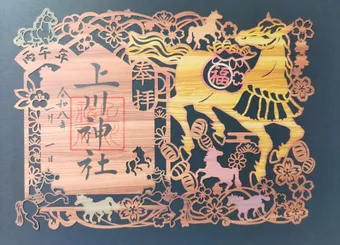 丙午年
奉拝
上川神社
令和八年
月 一日
福